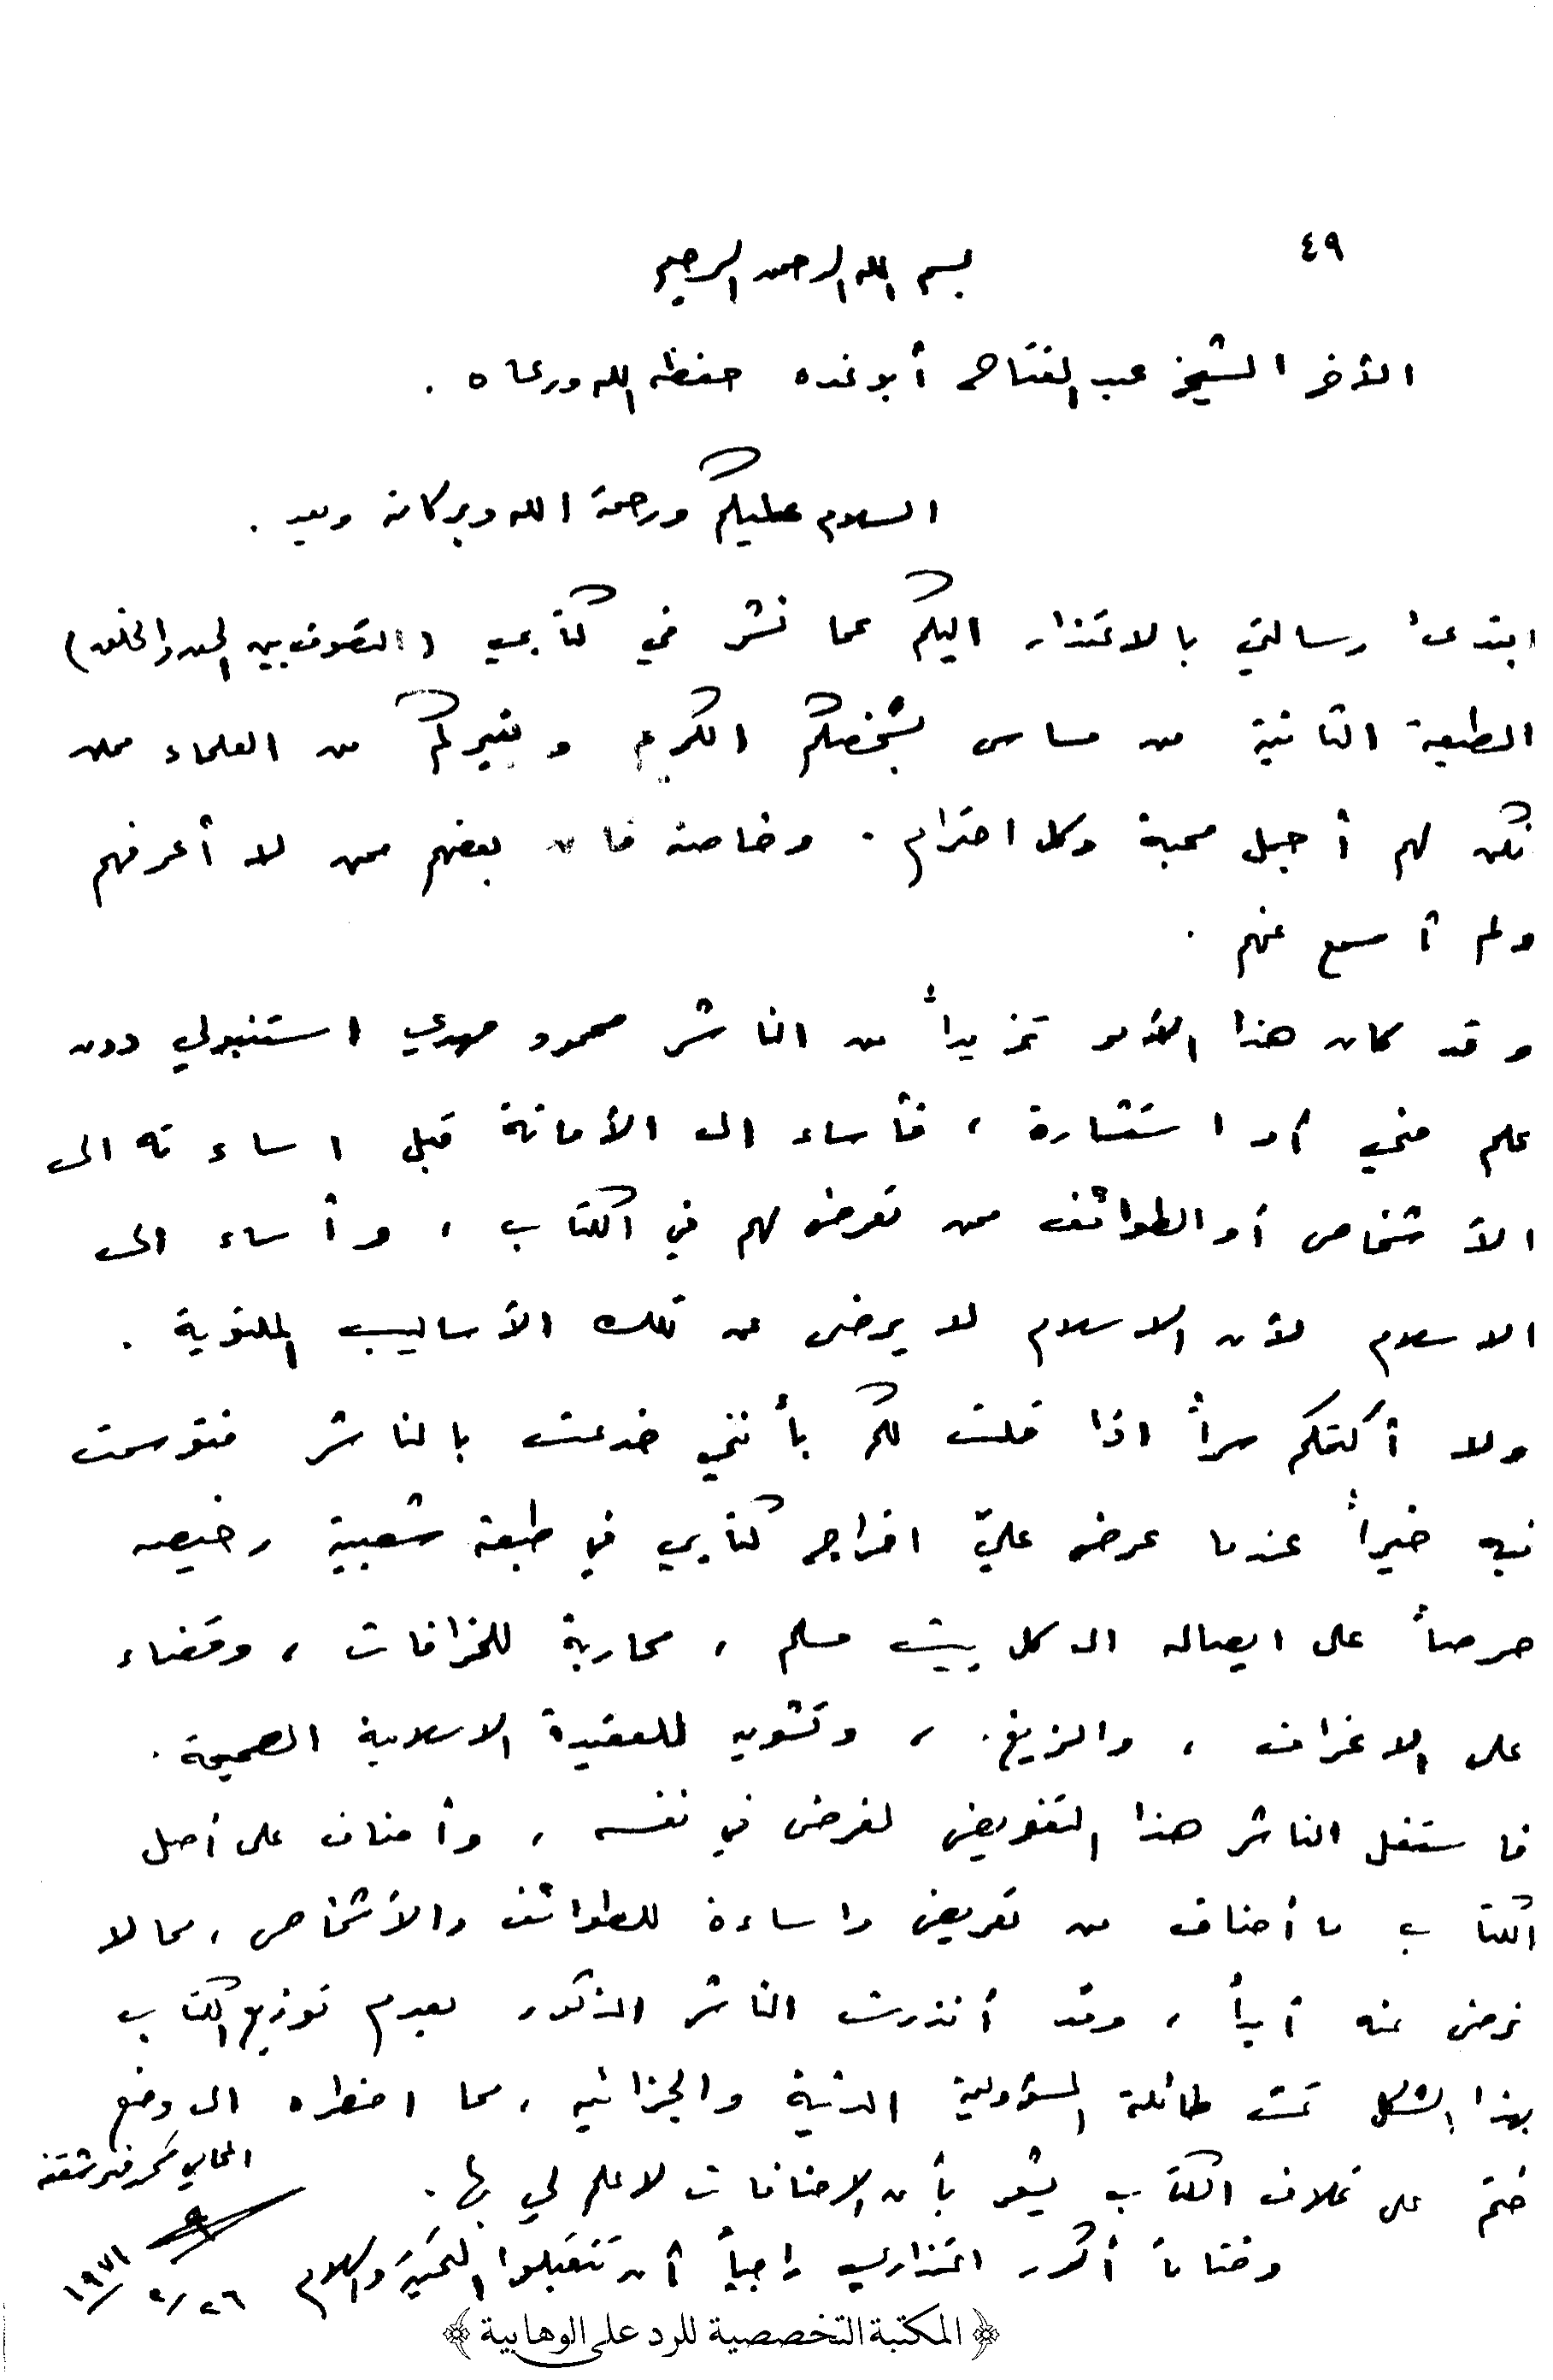 ٤٩
بسم الله الرحمن الرحيم
الأخ الشيخ عبد الفتاح أبو غده حفظه الله ورعاه .
السلام عليكم ورحمة الله وبركاته وبعد .
ابتدئ رسالتي بالاعتذار اليكم عما نشر في كتابي ( التصوف بين الحق والخلق )
الطبعة الثانية من مساس بشخصكم الكريم وبغيركم من العلماء ممن
نكن لهم أجل محبة وكل احترام . وخاصة فان بعضهم ممن لا أعرفهم
ولم أسمع عنهم .
وقد كان هذا الأمر تزيداً من الناشر محمود مهدي استنبولي دون
علم مني أو استشارة ، فأساء الى الأمانة قبل اساءته الى
الأشخاص أو الطوائف ممن تعرض لهم في الكتاب ، وأساء الى
الاسلام لأن الاسلام لا يرضى عن تلك الأساليب الملتوية .
ولا أكتمكم سراً اذا قلت لكم بأنني خدعت بالناشر فتوسمت
فيه خيراً عندما عرض عليّ اخراج كتابي في طبعة شعبية رخيصه
حرصاً على ايصاله الى كل بيت مسلم ، محاربة للخرافات ، وقضاء
على الانحراف ، والزيغ ، وتشويه للعقيدة الاسلامية الصحيحة .
فاستغل الناشر هذا التفويض لغرض في نفسه ، وأضاف على أصل
الكتاب ما أضاف من تعريض واساءة للطوائف والأشخاص ، مما لا
نرضى عنه أبداً ، وقد أنذرت الناشر المذكور بعدم توزيع الكتاب
بهذا الشكل تحت طائلة المسؤولية المدنية والجزائيه ، مما اضطره الى وضع
ختم على غلاف الكتاب يشعر بأن الاضافات لا علم لي بها .
وختاماً أكرر اعتذاري راجياً أن تتقبلوا التحية والسلام
المحامي محمد فهر شقفه
٢٦/٢/١٩٧١
المكتبة التخصصية للرد على الوهابية